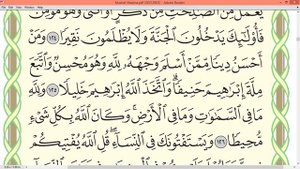 يَعْمَلْ مِنَ الصَّٰلِحَٰتِ مِن ذَكَرٍ أَوْ أُنثَىٰ وَهُوَ مُؤْمِنٌ
فَأُو۟لَٰٓئِكَ يَدْخُلُونَ الْجَنَّةَ وَلَا يُظْلَمُونَ نَقِيرًا ١٢٤ وَمَنْ
أَحْسَنُ دِينًا مِّمَّنْ أَسْلَمَ وَجْهَهُۥ لِلَّهِ وَهُوَ مُحْسِنٌ وَاتَّبَعَ
مِلَّةَ إِبْرَٰهِيمَ حَنِيفًا ۗ وَاتَّخَذَ اللَّهُ إِبْرَٰهِيمَ خَلِيلًا ١٢٥ وَلِلَّهِ
مَا فِى السَّمَٰوَٰتِ وَمَا فِى الْأَرْضِ ۚ وَكَانَ اللَّهُ بِكُلِّ شَىْءٍ
مُّحِيطًا ١٢٦ وَيَسْتَفْتُونَكَ فِى النِّسَآءِ ۖ قُلِ اللَّهُ يُفْتِيكُمْ